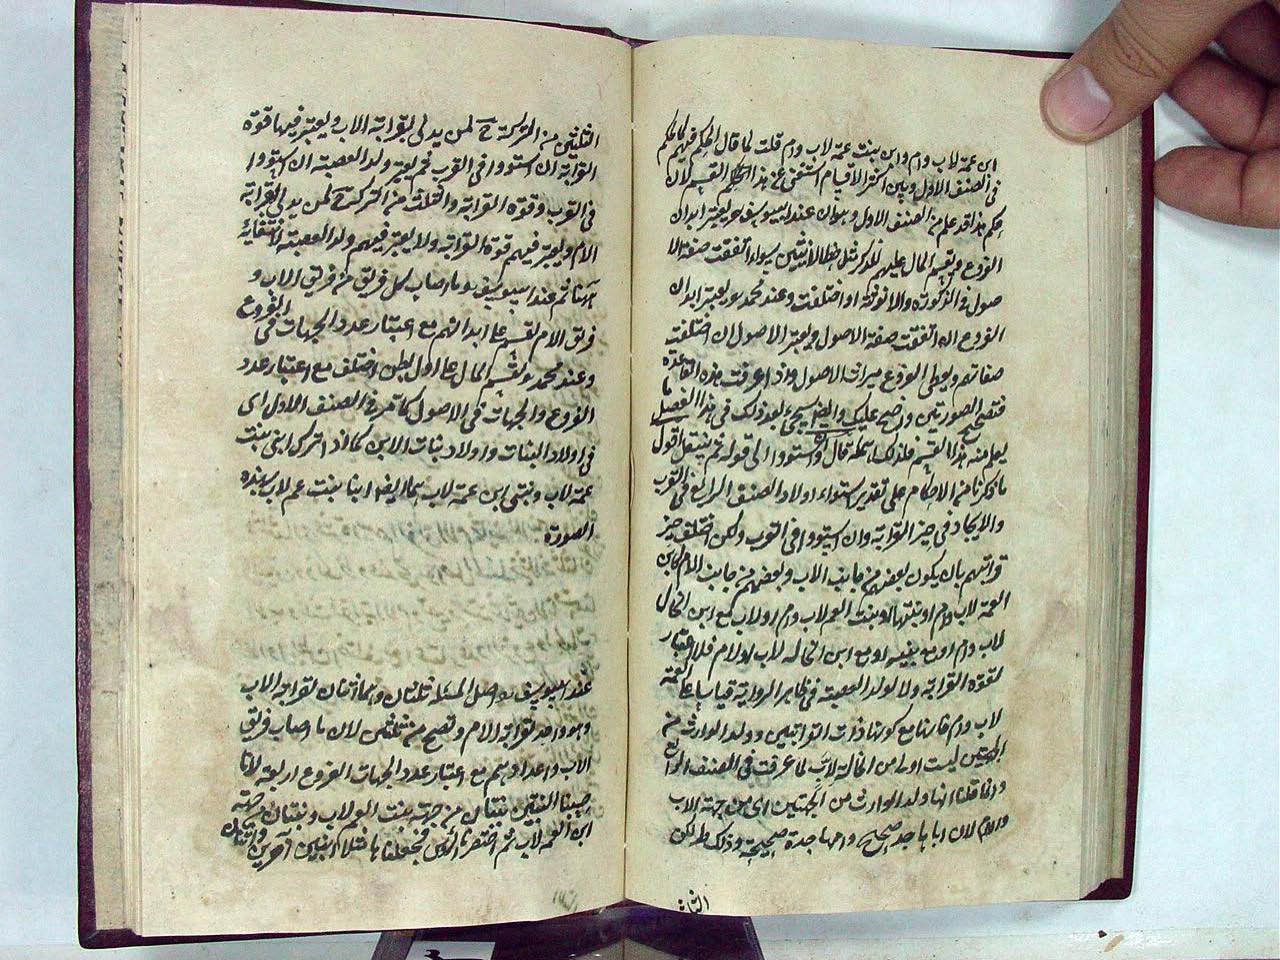 ابن عمة لاب وام وابن بنت عمة لاب وام قلت لما قال الحكم فيهم كالحكم
فى الصنف الاول وبين اكثر الاقسام استغنى عن هذا الحكم القسم لان
حكم هذا قد علم من الصنف الاول وهو ان عند ابيوسف رح يعتبر ابدان
الفروع ويقسم المال عليهم للذكر مثل حظ الانثيين سواء اتفقت صفة الا
صول فى الذكورة والانوثة او اختلفت وعند محمد رح يعتبر ابدان
الفروع ان اتفقت صفة الاصول ويعتبر الاصول ان اختلفت
صفاتهم ويعطى الفروع ميراث الاصول واذا عرفت هذه القاعدة
فتصحيح الصورتين واضح عليك وايضا سيجئ بعد ذلك فى هذا الفصل ما
يعلم منه هذا القسم فلذلك اهمله قال وان استووا الى قوله ثم ينتقل اقول
ما ذكرنا من الاحكام على تقدير استواء اولاد الصنف الرابع فى القرب
والاتحاد فى حيز القرابة وان استووا فى القرب ولكن اختلف حيز
قرابتهم بان يكون بعضهم من جانب الاب وبعضهم من جانب الام كابن
العمة لاب وام او بنتها او بنت العم لاب وام او لاب مع ابن الخال
لاب وام او مع بنته او مع ابن الخالة لاب او لام فلا اعتبار
لقوة القرابة ولا لولد العصبة فى ظاهر الرواية قياسا على عمة
لاب وام فانها مع كونها ذات القرابتين وولد الوارث من
الجهتين ليست اولى من الخالة لاب لما عرفت فى الصنف الرابع
وانما قلنا انها ولد الوارث من الجهتين اى من جهة الاب
والام لان اباها جد صحيح وامها جدة صحيحة وذلك طر لكن
الثلثين من التركة ح لمن يدلى بقرابة الاب ويعتبر فيها قوة
القرابة ان استووا فى القرب ثم يعتبر ولد العصبة ان استووا
فى القرب وقوة القرابة والثلث من التركة ح لمن يدلى بقرابة
الام ويعتبر فيهم قوة القرابة ولا يعتبر فيهم ولد العصبة لانتفائه
ههنا ثم عند ابيوسف رح ما اصاب كل فريق من فريقى الاب و
فريق الام يقسم على ابدانهم مع اعتبار عدد الجهات فى الفروع
وعند محمد رح يقسم المال على اول بطن اختلف مع اعتبار عدد
الفروع والجهات فى الاصول كما مر فى الصنف الاول اى
فى اولاد البنات واولاد بنات الابن كما اذا ترك ابنى بنت
عمة لاب وبنتى ابن عمة لاب هما ايضا ابنا بنت عم لاب بهذه
الصورة
عند ابيوسف رح اصل المسئلة ثلثة وهما اثنان لقرابة الاب
وهو واحد لقرابة الام وتصح من ثلثين لان ما اصاب فريق
الاب مع اعتبار عدد الجهات الفروع اربعة لانا
حسبنا البنتين بنتان من جهة بنت العم لاب وبنتان من جهة
ابن العمة لاب ثم اختصرنا الرؤس فجعلناها مثلا ابنين آخرين